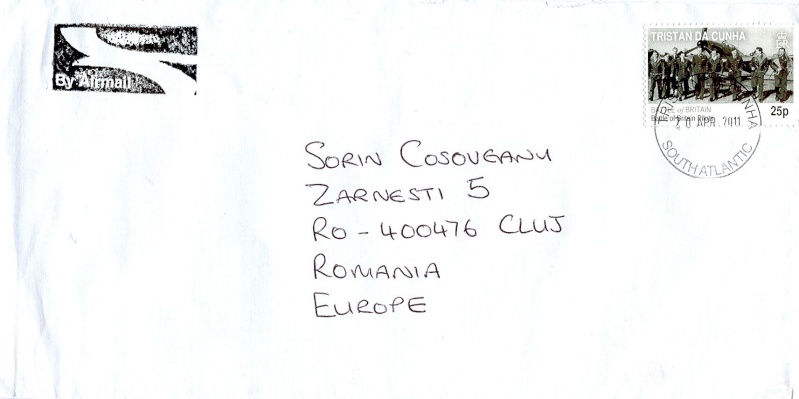 By Airmail
TRISTAN DA CUNHA
BATTLE of BRITAIN
Battle of Britain Pilots
25p
20 APR 2011
SOUTH ATLANTIC
SORIN COSOVEANU
ZARNESTI 5
RO - 400476 CLUJ
ROMANIA
EUROPE